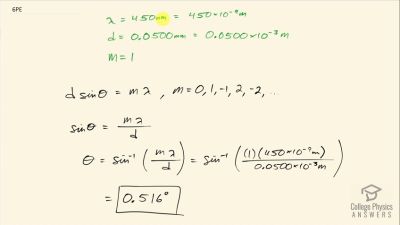 6PE
λ = 450 nm = 450×10⁻⁹ m
d = 0.0500 mm = 0.0500×10⁻³ m
m = 1
d sinθ = mλ , m = 0, 1, -1, 2, -2, ..
sinθ = mλ/d
θ = sin⁻¹(mλ/d) = sin⁻¹((1)(450×10⁻⁹m)/0.0500×10⁻³m)
= 0.516°
College Physics
ANSWERS